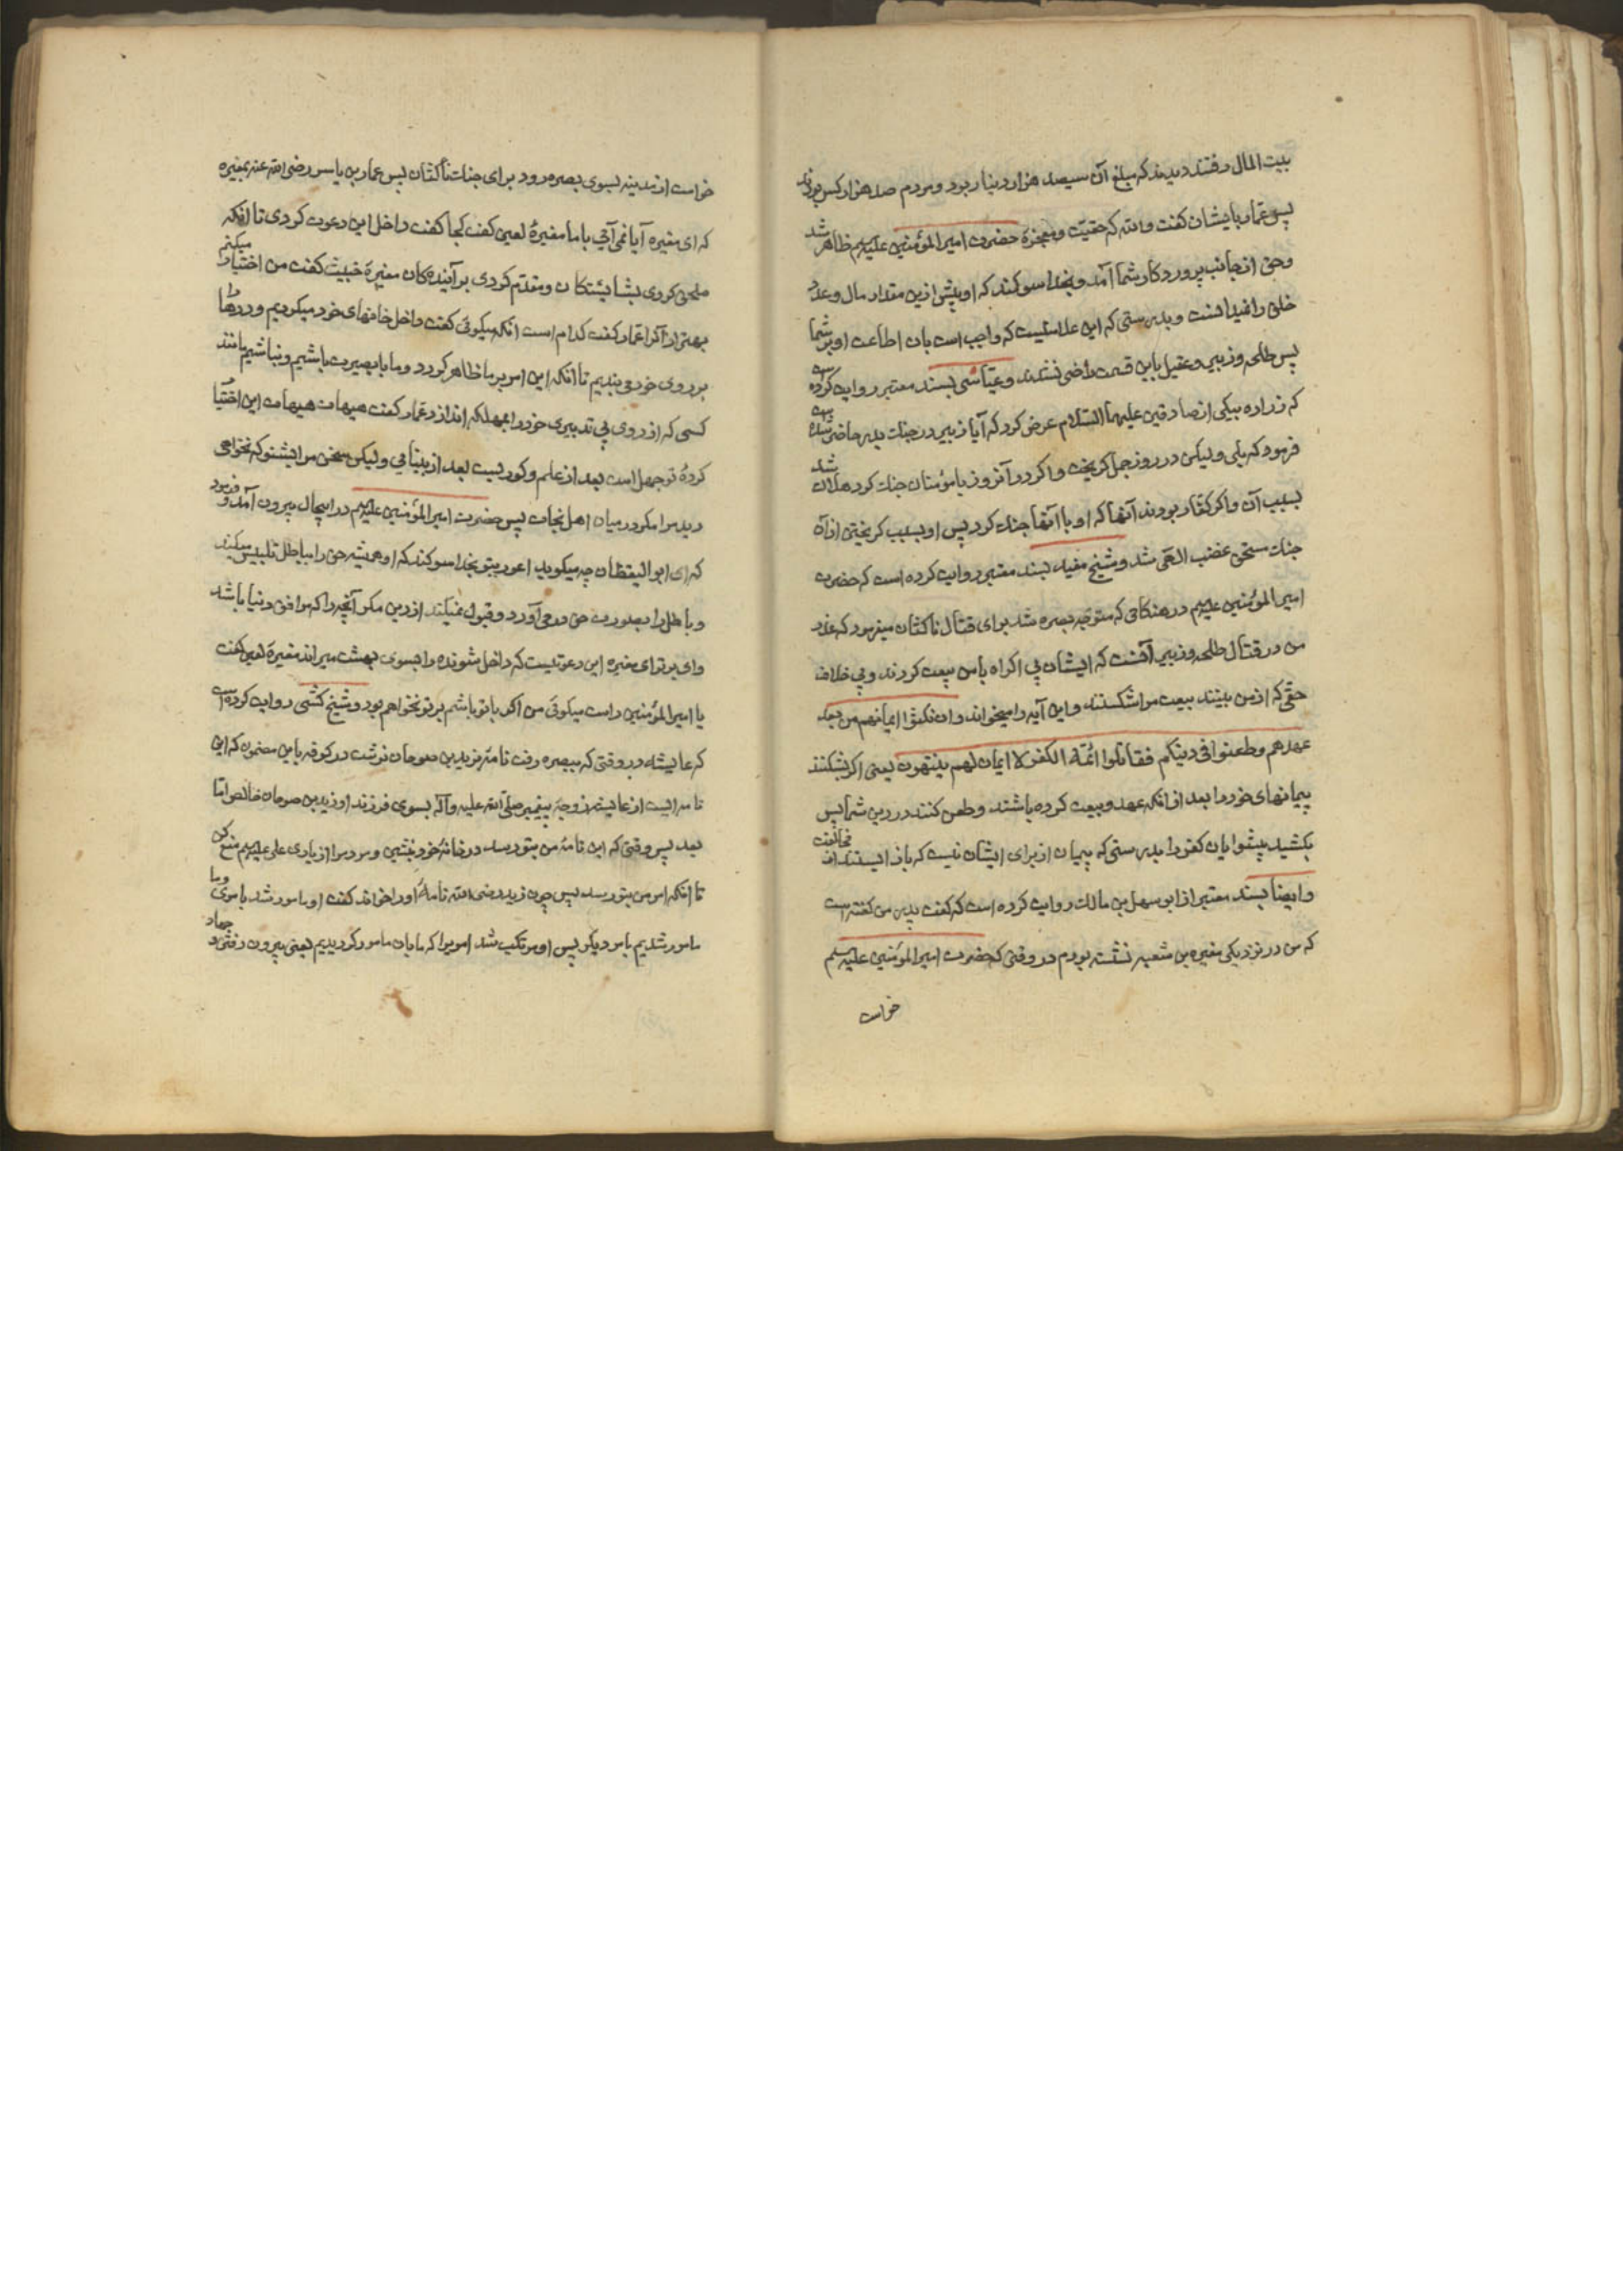 بیت المال رفتند دیدند که مبلغ آن سیصد هزار دینار بود و مردم صد هزار کس بودند
پس عمار بایشان کفت والله که حقیت و معجزهٔ حضرت امیر المؤمنین علیه السلم ظاهر شد
و حق از جانب پروردکار شما آمد و بخدا سوکند که او پیش ازین مقدار مال و عدد
خلق را نمیدانست و بدرستی که این علامتیست که واجب است بآن اطاعت او بر شما
پس طلحه و زبیر و عقیل باین قسمت راضی نشدند و عیاشی بسند معتبر روایت کرده است
که زراره بیکی از صادقین علیهما السلام عرض کرد که آیا زبیر در جنک بدر حاضر شده است
فرمود که بلی ولیکن در روز جمل کریخت و اکر در آنروز با مؤمنان جنک کرد هلاک شد
بسبب آن و اکر کفار بودند آنها که او با آنها جنک کرد پس او بسبب کریختن از آن
جنک مستحق غضب الهی شد و شیخ مفید بسند معتبر روایت کرده است که حضرت
امیر المؤمنین علیه السلم در هنکامی که متوجه بصره شد برای قتال ناکثان میفرمود که عذر
من در قتال طلحه و زبیر آنست که ایشان بی اکراه با من بیعت کردند و بی خلاف
حقی که از من بینند بیعت مرا شکستند و این آیه را میخواند وان نکثوا ایمانهم من بعد
عهدهم وطعنوا فی دینکم فقاتلوا ائمة الکفر لا ایمان لهم ینتهون یعنی اکر بشکنند
پیمانهای خود را بعد از انکه عهد و بیعت کرده باشند و طعن کنند در دین شما پس
بکشید پیشوایان کفر را بدرستی که پیمان از برای ایشان نیست که باز ایستند از مخالفت
و ایضا بسند معتبر از ابو سهل بن مالک روایت کرده است که کفت پدر من کفته است
که من در نزدیکی مغیره بن شعبه نشسته بودم در وقتی که حضرت امیر المؤمنین علیه السلم
خواست
خواست از مدینه بسوی بصره رود برای جنک ناکثان پس عمار بن یاسر رضی الله عنه بمغیره
که ای مغیره آیا نمی آیی با ما مغیرهٔ لعین کفت کجا کفت داخل این دعوت کردی تا آنکه
ملحق کردی بشایستکان و مقدم کردی بر آیندکان مغیرهٔ خبیث کفت من اختیار میکنم
بهتر از آنرا عمار کفت کدام است آنکه میکوئی کفت داخل خانهای خود میکردیم و درها را
بر روی خود می بندیم تا آنکه این امر بر ما ظاهر کردد و ما با بصیرت باشیم و نباشیم مانند
کسی که از روی بی تدبیری خود را بمهلکه اندازد عمار کفت هیهات هیهات این اختیار
کردهٔ تو جهل است بعد از علم و کوریست بعد از بینایی ولیکن سخن مرا بشنو که نخواهی
دید مرا مکر در میان اهل نجات پس حضرت امیر المؤمنین علیه السلم در اینحال بیرون آمد و فرمود
که ای ابو الیقظان چه میکوید اعور بتو بخدا سوکند که او همیشه حق را بباطل تلبیس میکند
و باطل را بصورت حق در می آورد و قبول نمیکند از دین مکر آنچه را که موافق دنیا باشد
وای بر تو ای مغیره این دعوتیست که داخل شونده را بسوی بهشت میراند مغیرهٔ لعین کفت
یا امیر المؤمنین راست میکوئی من اکر با تو باشم بر تو نخواهم بود و شیخ کشی روایت کرده است
که عایشه در وقتی که ببصره رفت نامه بزید بن صوحان نوشت در کوفه باین مضمون که این
نامه ایست از عایشه زوجهٔ پیغمبر صلی الله علیه وآله بسوی فرزند او زید بن صوحان خالص اما
بعد پس وقتی که این نامهٔ من بتو رسد در خانهٔ خود بنشین و مردم را از یاری علی علیه السلم منع کن
تا آنکه امر من بتو رسد پس چون زید رضی الله نامهٔ او را خواند کفت او مامور شد بامری و ما
مامور شدیم بامر دیکر پس او مرتکب شد امریرا که ما بآن مامور کردیدیم یعنی بیرون رفتن و جهاد